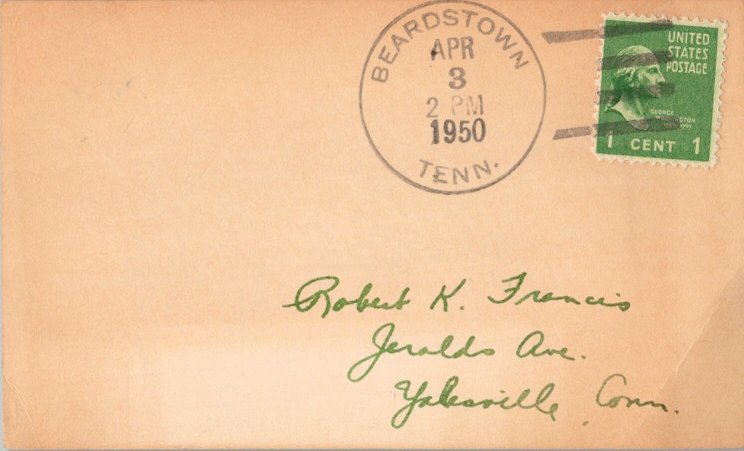 BEARDSTOWN
APR
3
2 PM
1950
TENN.
UNITED
STATES
POSTAGE
GEORGE
1 CENT 1
Robert K. Francis
Jeralds Ave.
Yalesville, Conn.